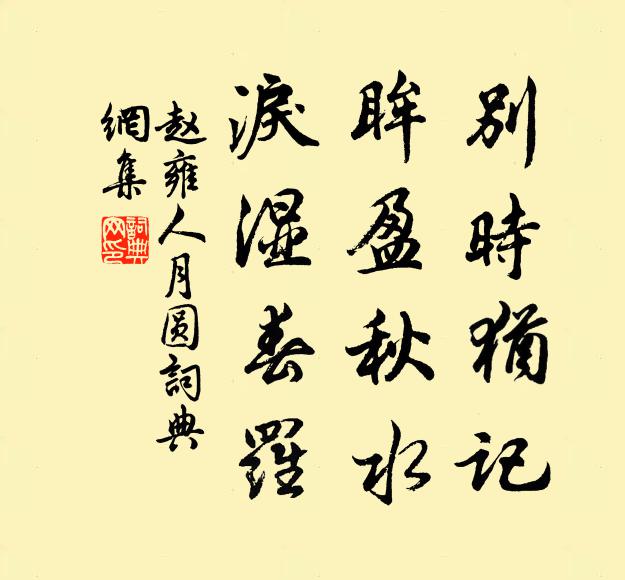 別時猶記
眸盈秋水
淚湿春羅
赵雍人月圆詞典
網集
詞典
网印